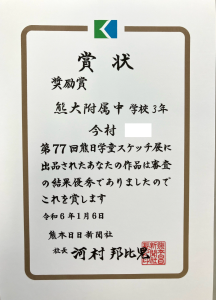 賞状
奨励賞
熊大附属中学校3年
今村
第77回熊日学童スケッチ展に
出品されたあなたの作品は審査
の結果優秀でありましたので
これを賞します
令和6年1月6日
熊本日日新聞社
社長 河村邦比児